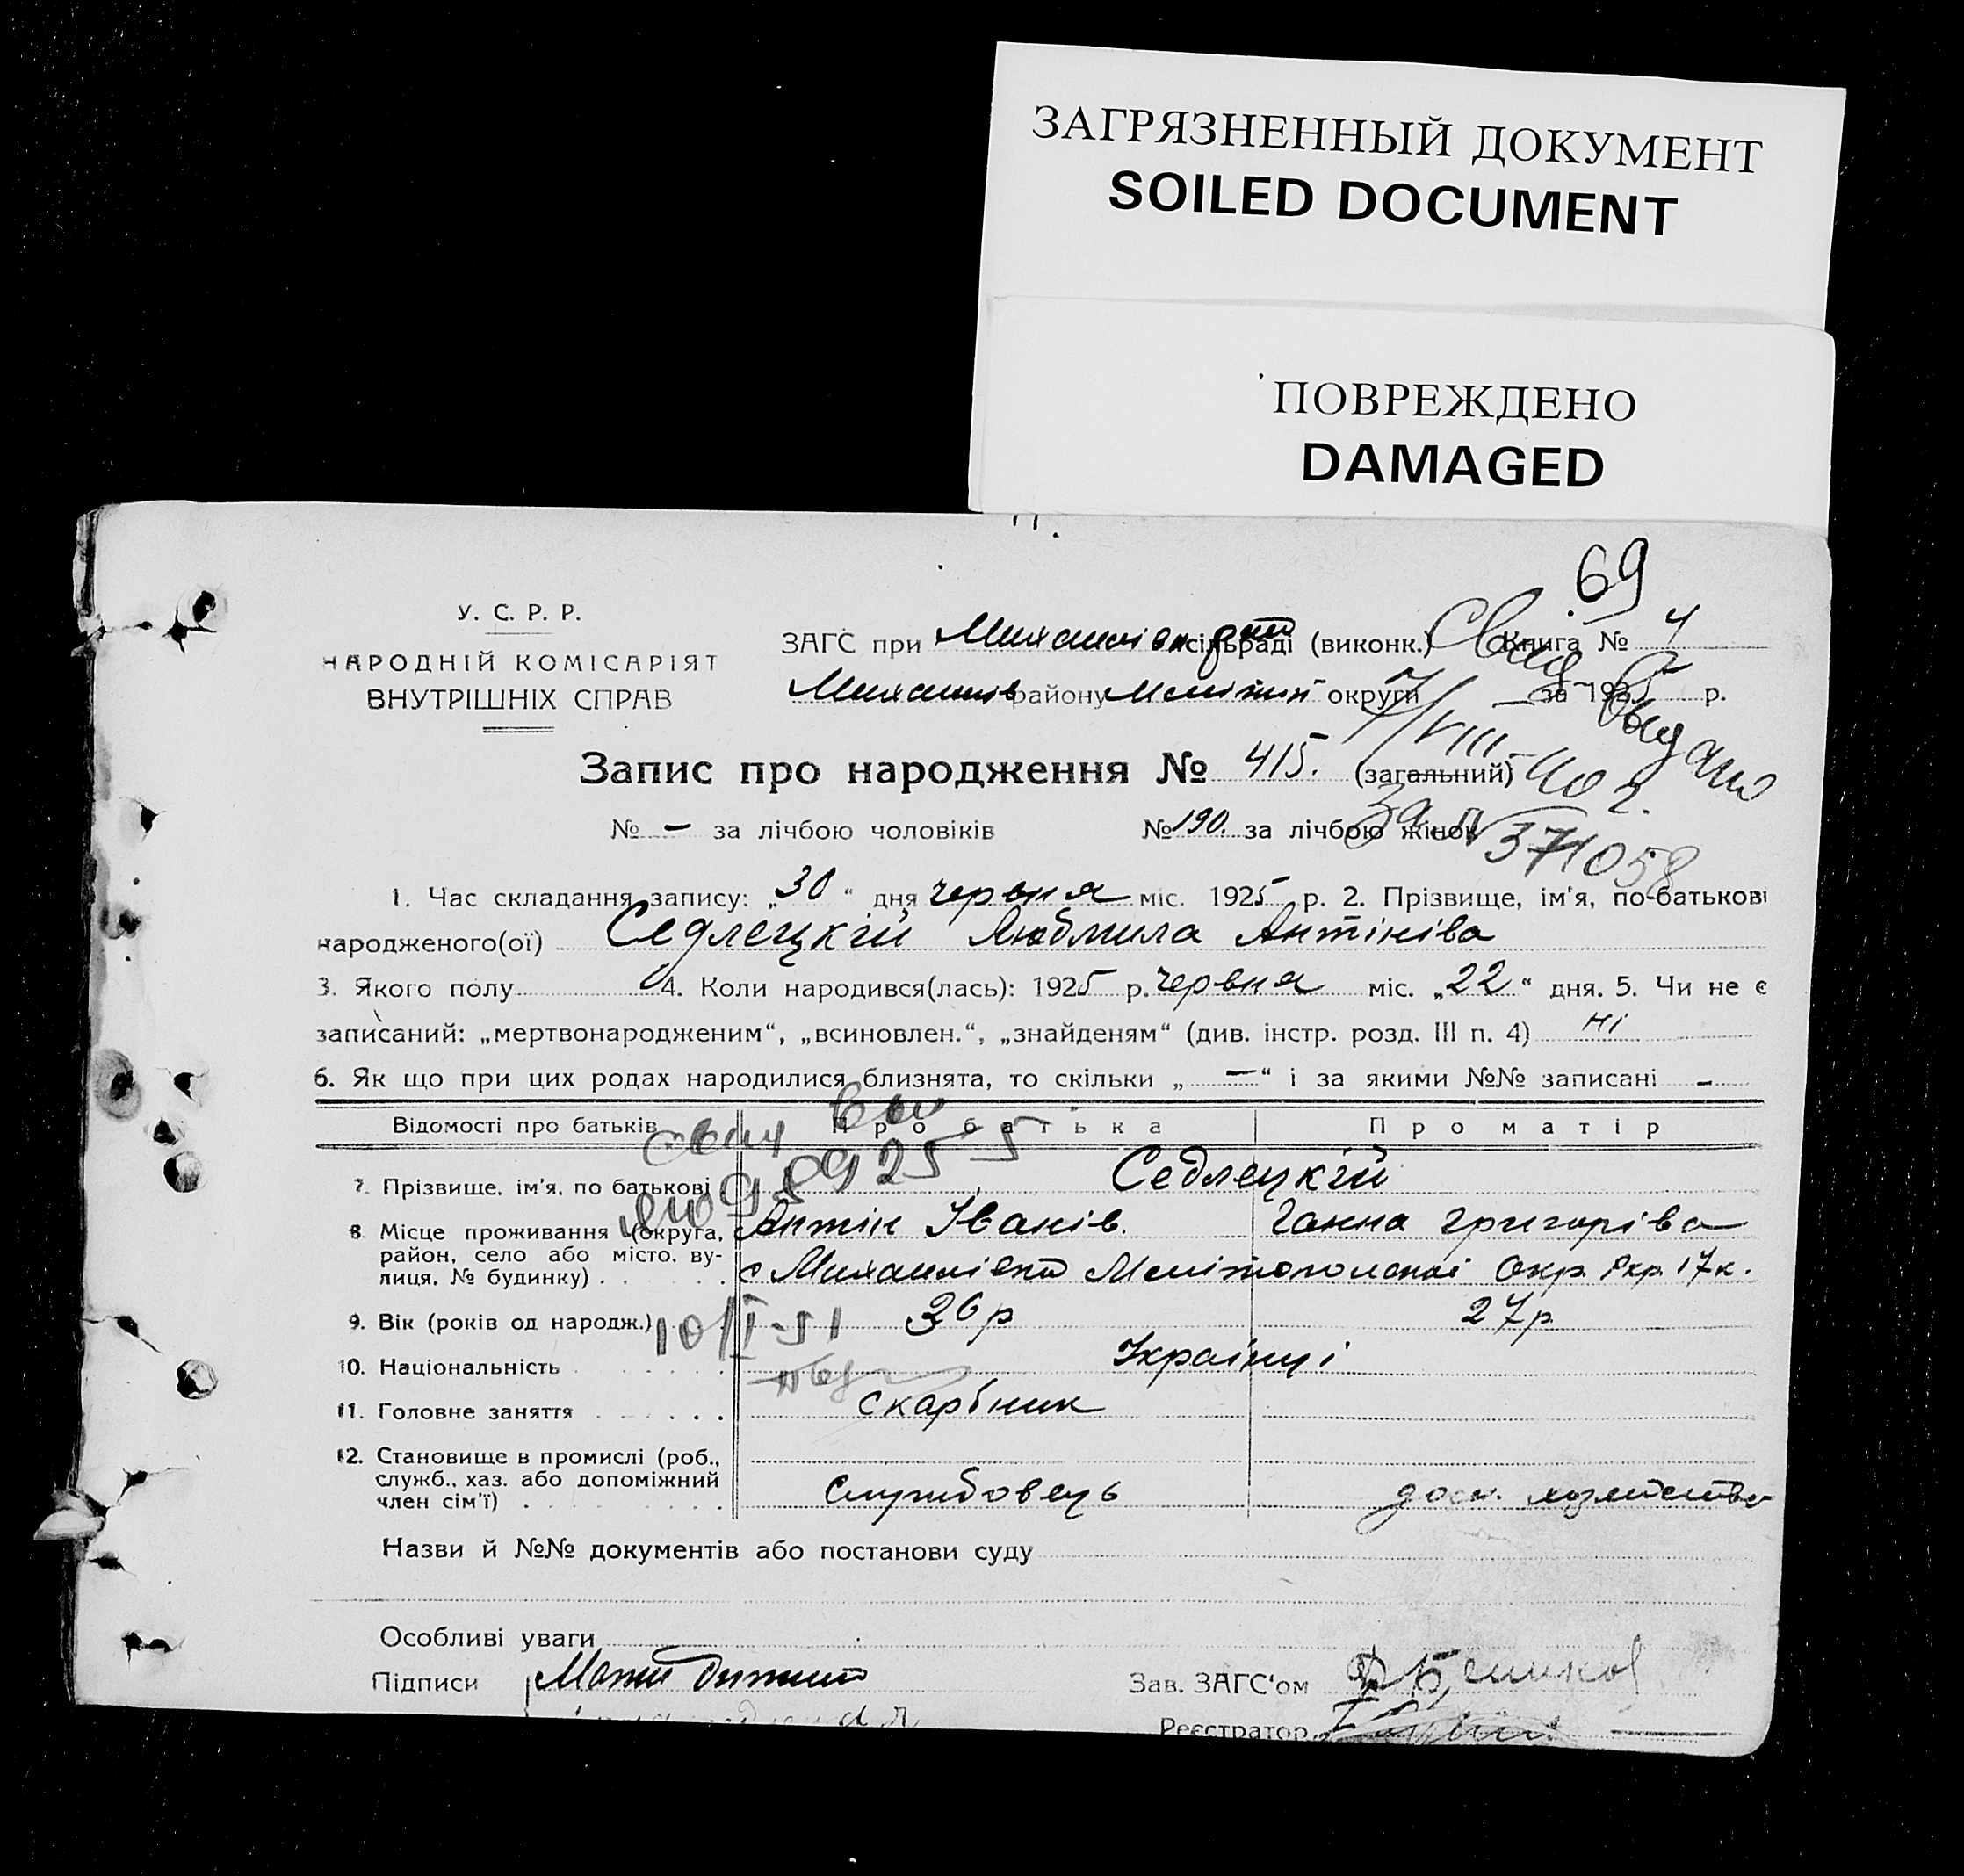 ЗАГРЯЗНЕННЫЙ ДОКУМЕНТ
SOILED DOCUMENT
ПОВРЕЖДЕНО
DAMAGED
69
У. С. Р. Р.
НАРОДНІЙ КОМІСАРІЯТ
ВНУТРІШНІХ СПРАВ
ЗАГС при сільраді (виконк.) Книга № 4
району округи за 1925 р.
Запис про народження № 415. (загальний)
№ – за лічбою чоловіків № 190. за лічбою жінок
7/VIII-40 г.
371058
1. Час складання запису: „30“ дня червня міс. 1925 р. 2. Прізвище, ім'я, по-батькові
народженого(ої) Седлецкій Людмила Антінівa
3. Якого полу 4. Коли народився(лась): 1925 р. червня міс. „22“ дня. 5. Чи не є
записаний: „мертвонародженим“, „всиновлен.“, „знайденям“ (див. інстр. розд. III п. 4) ні
6. Як що при цих родах народилися близнята, то скільки „–“ і за якими №№ записані –
Відомості про батьків Про батька Про матір
7. Прізвище, ім'я, по батькові Седлецкій
Антін Іванів. Ганна Григорівa
8. Місце проживання (округа,
район, село або місто, ву-
лиця, № будинку) с Михайлівка Мелітопольскої Окр.
9. Вік (років од народж.) 36 р 27 р
10/I-51
10. Національність Українці
11. Головне заняття скарбник
12. Становище в промислі (роб.,
служб., хаз. або допоміжний
член сім'ї) Службовець
Назви й №№ документів або постанови суду
Особливі уваги
Підписи Зав. ЗАГС'ом
Реєстратор